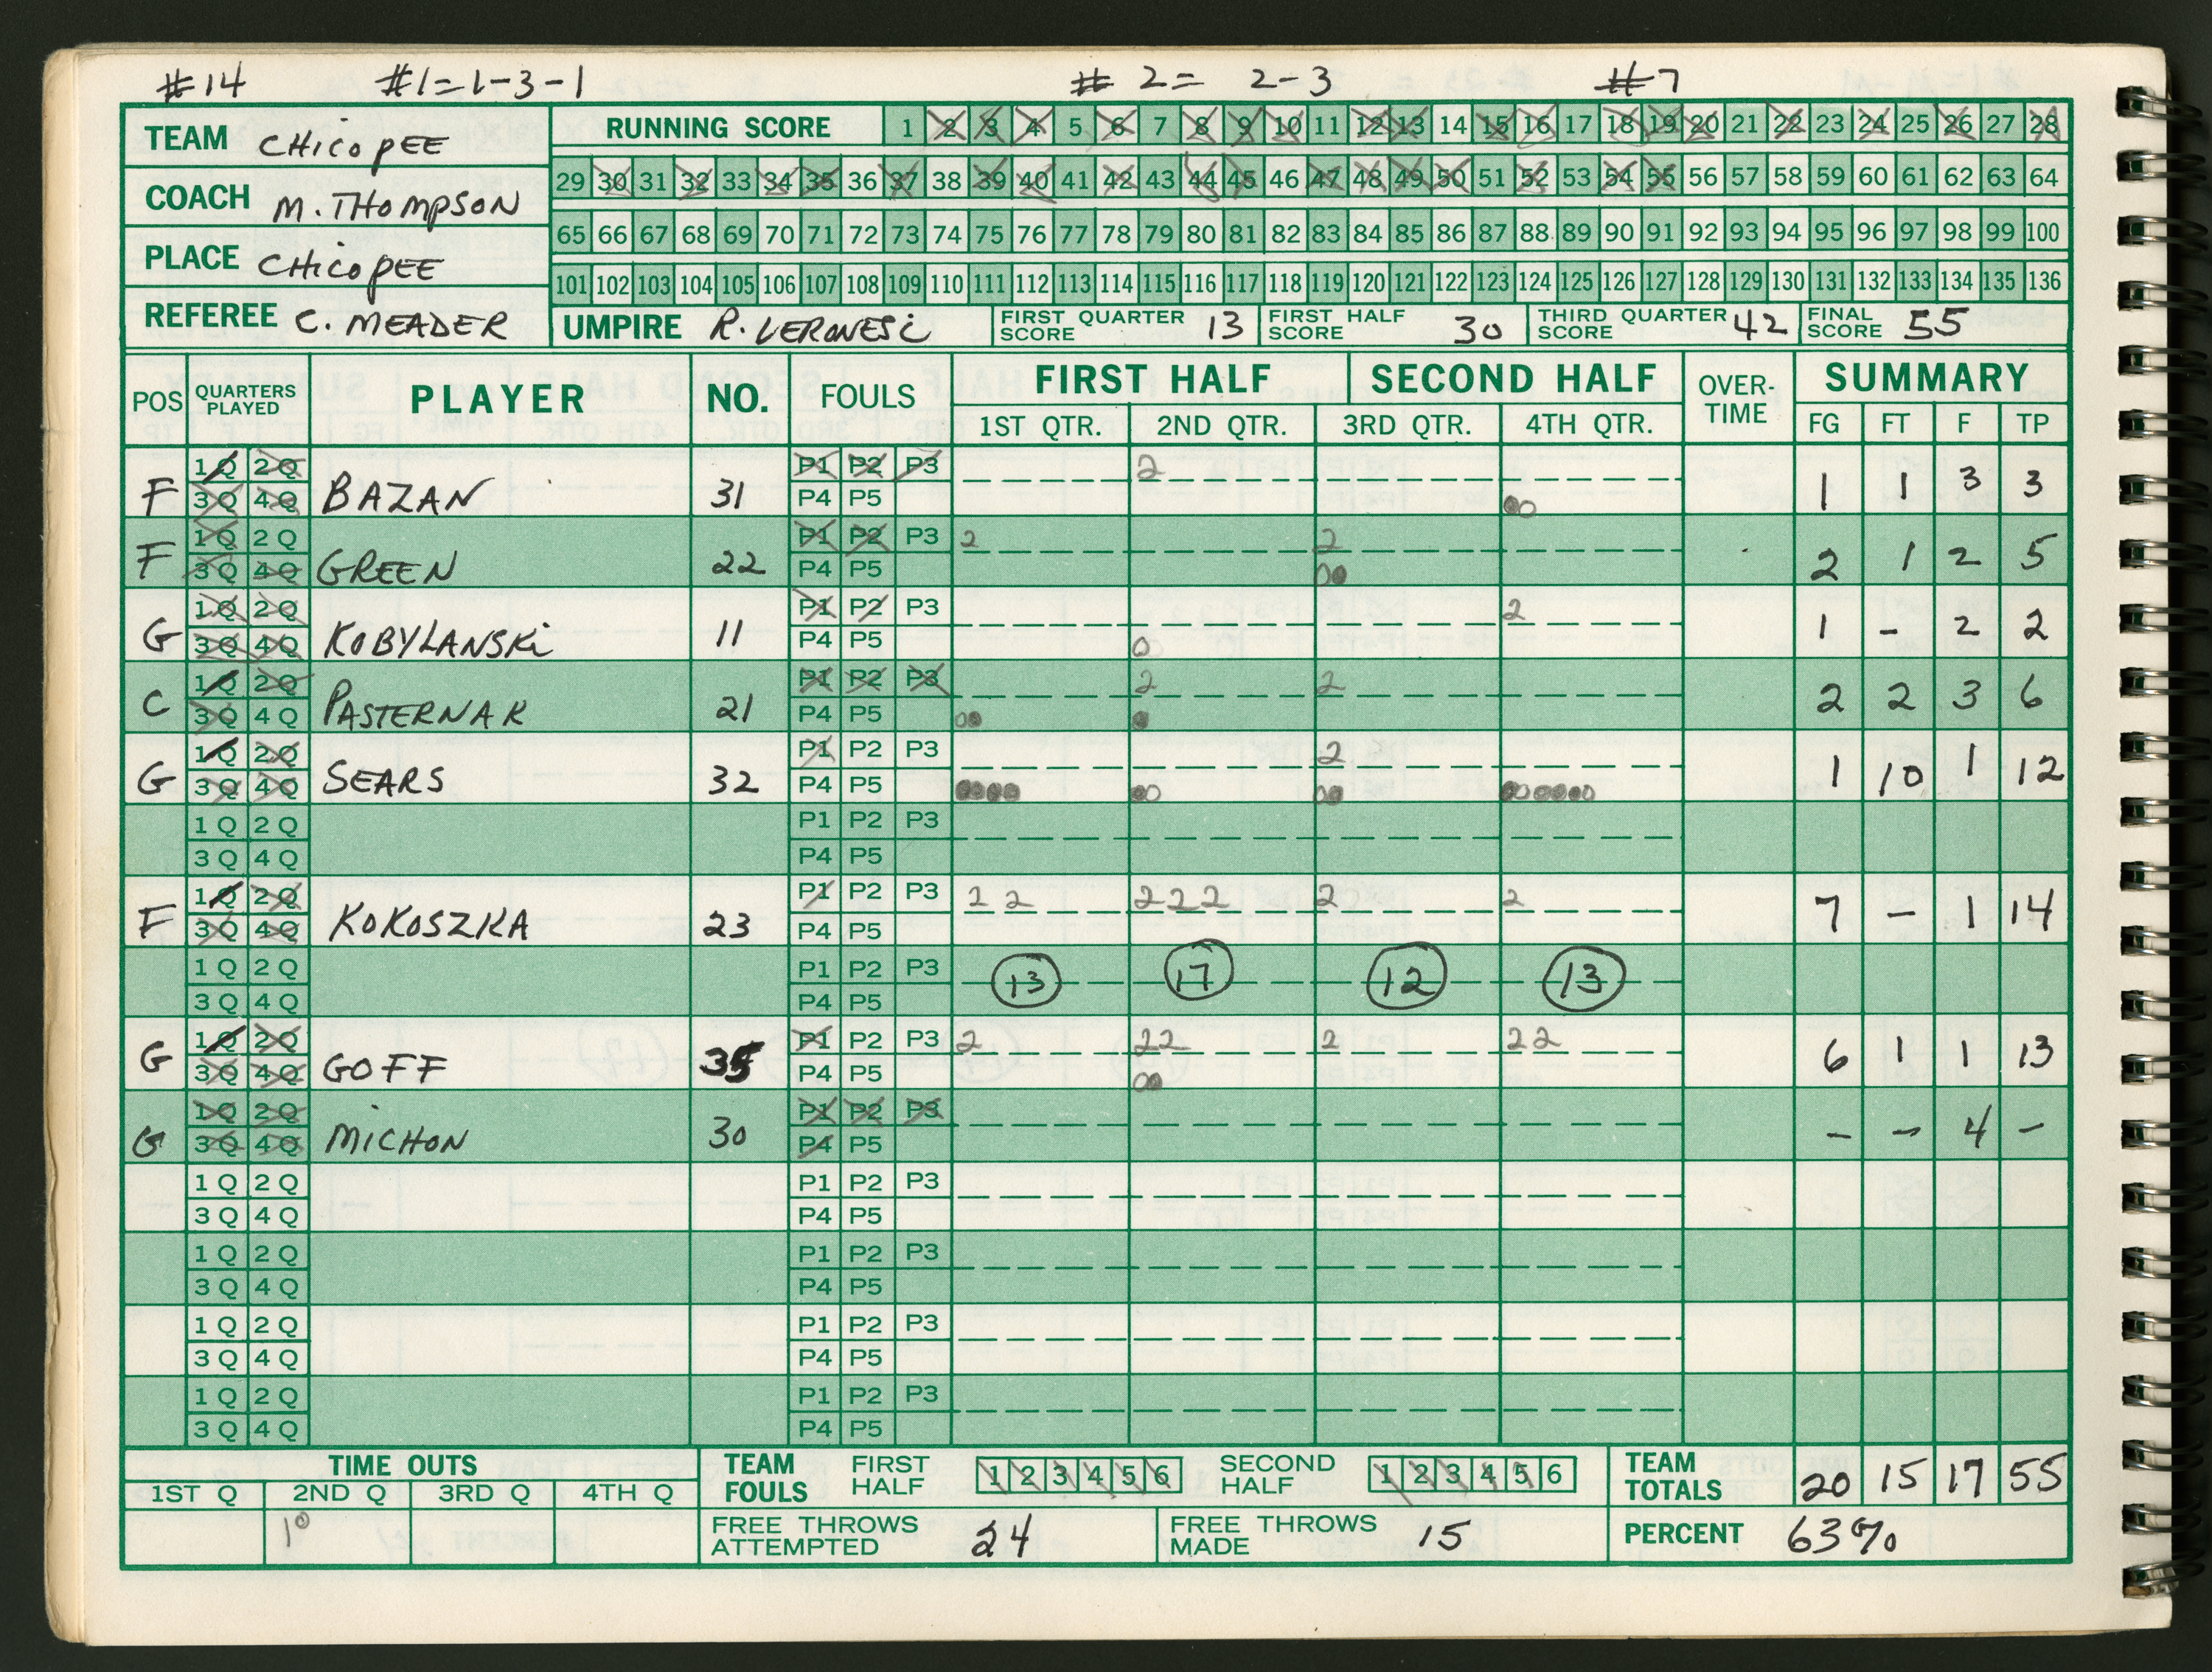 #14 #1=1-3-1 # 2= 2-3 #7
TEAM CHICOPEE
RUNNING SCORE 1 2 3 4 5 6 7 8 9 10 11 12 13 14 15 16 17 18 19 20 21 22 23 24 25 26 27 28
29 30 31 32 33 34 35 36 37 38 39 40 41 42 43 44 45 46 47 48 49 50 51 52 53 54 55 56 57 58 59 60 61 62 63 64
COACH M. THOMPSON
65 66 67 68 69 70 71 72 73 74 75 76 77 78 79 80 81 82 83 84 85 86 87 88 89 90 91 92 93 94 95 96 97 98 99 100
PLACE CHICOPEE
101 102 103 104 105 106 107 108 109 110 111 112 113 114 115 116 117 118 119 120 121 122 123 124 125 126 127 128 129 130 131 132 133 134 135 136
REFEREE C. MEADER UMPIRE R. VERONESI FIRST QUARTER SCORE 13 FIRST HALF SCORE 30 THIRD QUARTER SCORE 42 FINAL SCORE 55
POS QUARTERS PLAYED PLAYER NO. FOULS FIRST HALF SECOND HALF OVER-TIME SUMMARY
1ST QTR. 2ND QTR. 3RD QTR. 4TH QTR. FG FT F TP
1Q 2Q P1 P2 P3 2
F 3Q 4Q BAZAN 31 P4 P5 1 1 3 3
1Q 2Q P1 P2 P3 2 2
F 3Q 4Q GREEN 22 P4 P5 2 1 2 5
1Q 2Q P1 P2 P3 2
G 3Q 4Q KOBYLANSKI 11 P4 P5 0 1 - 2 2
1Q 2Q P1 P2 P3 2 2
C 3Q 4Q PASTERNAK 21 P4 P5 2 2 3 6
1Q 2Q P1 P2 P3 2
G 3Q 4Q SEARS 32 P4 P5 1 10 1 12
1Q 2Q P1 P2 P3
3Q 4Q P4 P5
1Q 2Q P1 P2 P3 2 2 2 2 2 2 2
F 3Q 4Q KOKOSZKA 23 P4 P5 7 - 1 14
1Q 2Q P1 P2 P3 13 17 12 13
3Q 4Q P4 P5
1Q 2Q P1 P2 P3 2 22 2 22
G 3Q 4Q GOFF 35 P4 P5 6 1 1 13
1Q 2Q P1 P2 P3
G 3Q 4Q MICHON 30 P4 P5 - - 4 -
1Q 2Q P1 P2 P3
3Q 4Q P4 P5
1Q 2Q P1 P2 P3
3Q 4Q P4 P5
1Q 2Q P1 P2 P3
3Q 4Q P4 P5
1Q 2Q P1 P2 P3
3Q 4Q P4 P5
TIME OUTS TEAM FOULS FIRST HALF 1 2 3 4 5 6 SECOND HALF 1 2 3 4 5 6 TEAM TOTALS 20 15 17 55
1ST Q 2ND Q 3RD Q 4TH Q
FREE THROWS ATTEMPTED 24 FREE THROWS MADE 15 PERCENT 63%